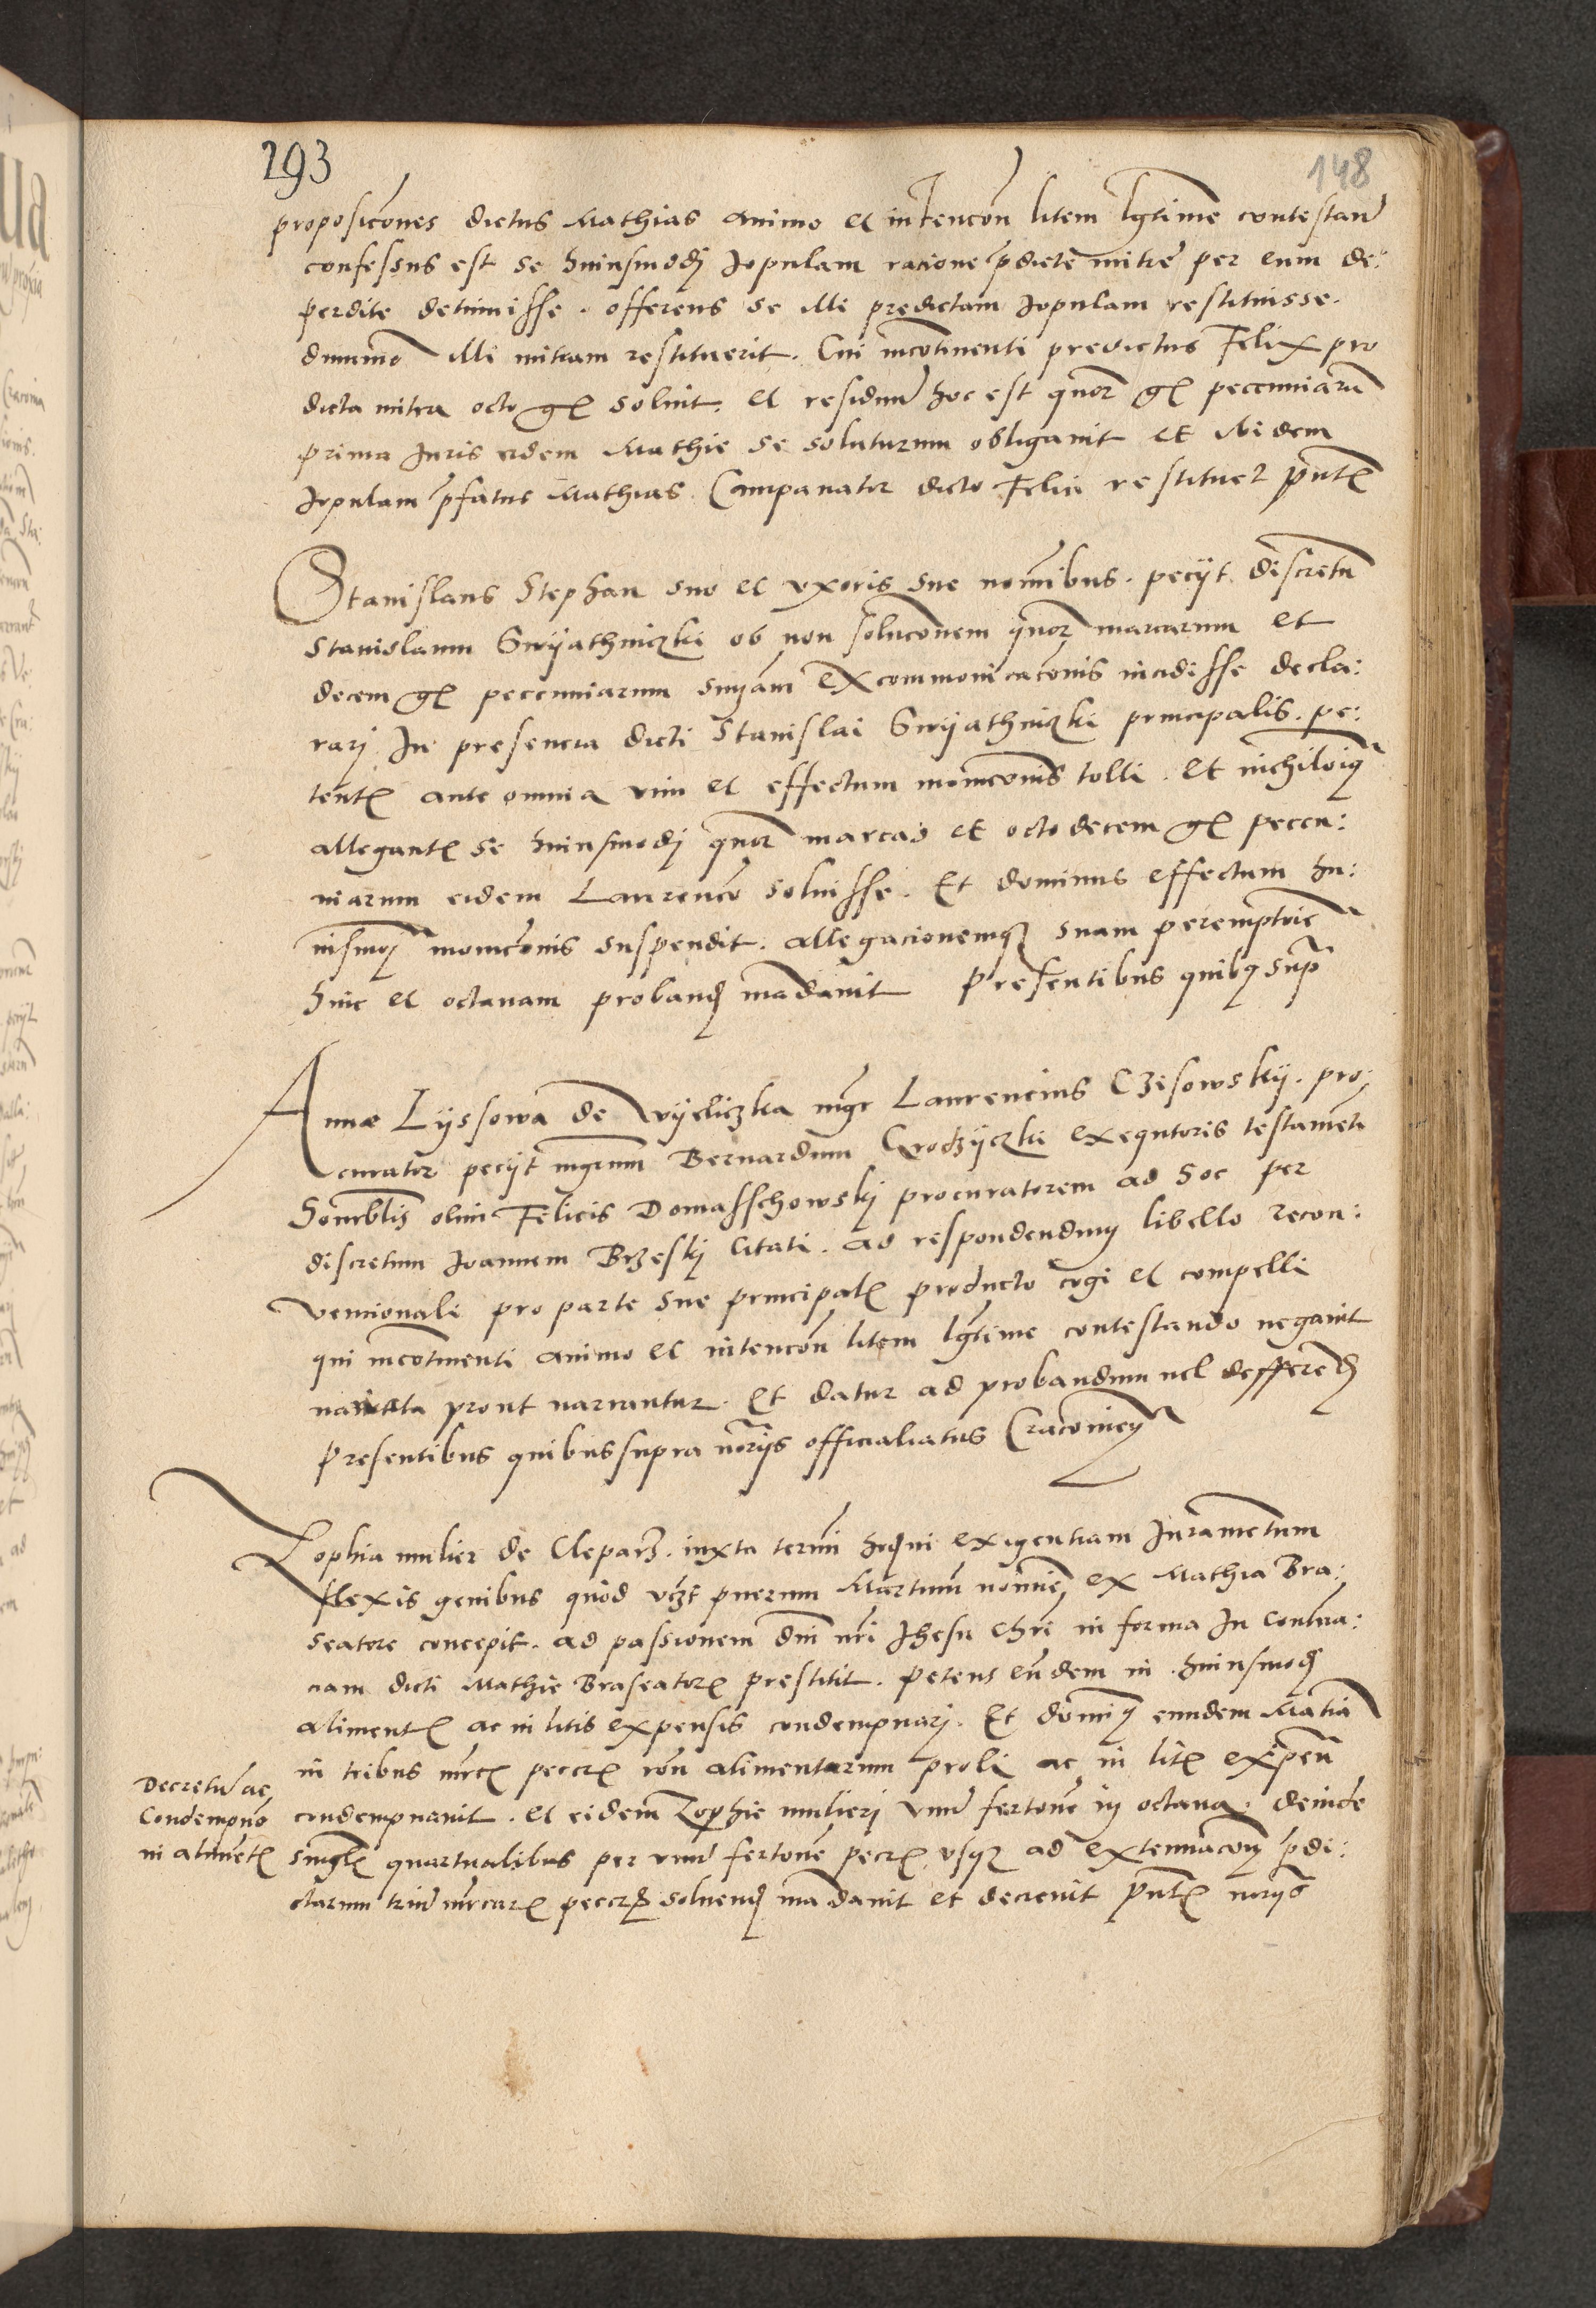 293
148
proposicones dictus Mathias animo et intencon litem lgtime contestan
confessus est se huiusmodj Jopulam racione pdicte mitre per eum de:
perdite detinuisse. offerens se illi predictam Jopulam restituisse.
dummo illi mitram restituerit. Cui incotinenti predictus Felix pro
dicta mitra octo gr soluit. et residuu hoc est quor gr pecunniaru
prima Juris eidem Mathie se soluturum obligauit et ibidem
Jopulam pfatus Mathias Campanator dicto Felici restituet pntr
Stanislaus Stephan suo et vxoris sue nominibus. pecijt discretu
Stanislaum Swijathniczki ob non solucionem quor marcarum et
decem gr pecunniarum snyam excommonicaconis incidisse decla:
rarj In presencia dicti Stanislai Swijathniczki principalis. pe:
tentr ante omnia vim et effectum monicionis tolli. et nichiloiq
allegantr se huiusmodj quor marcas et octo decem gr pecun:
niarum eidem Laurenco soluisse. Et dominus effectum hu:
iusmoj monicionis suspendit. allegacionemq suam peremptorie
huic et octauam proband madauit Presentibus quibq supra
Anne Lyssowa de Wijeliczka mgr Laurencius Czisowskij. pro:
curator pecijt mgrum Bernardum Grodzijczki exequtoris testameti
honorblis olim Felicis Domasschowskj procuratorem ad hoc per
discretum Joannem Brzeskj citati. ad respondendum libello recon:
vencionali pro parte sue principalr producto cogi et compelli
qui incotinenti animo et intencon litem lgtime contestando negauit
narrata prout narrantur. Et datur ad probandum vel defferend
Presentibus quibus supra noriis officialiatus Cracouien
Zophia mulier de Cleparz. iuxta termi hodierni exigentiam Juramentum
flexis genibus quod vczt puerum Martinum nomine ex Mathia Bra:
seatore concepit. ad passionem dni nri Jhesu chri in forma In contuma:
ciam dicti Mathie Braseatorr prestitit. Petens eundem in huiusmod
alimentr ac in litis expensis condempnarj. Et dominq eundem Mathia
in tribus mrcr pecunr ron alimentarum proli ac in litr expens
condempnauit. et eidem Zophie mulierj vnu fertone in octaua. deinde
singlr quartualibus per vnu fertone pecrr vsqz ad extenuacom pdi:
ctarum triu mrcarr peccrr soluend madauit et decreuit pntr noriis
Decretu ac
Condempno
in alimentr